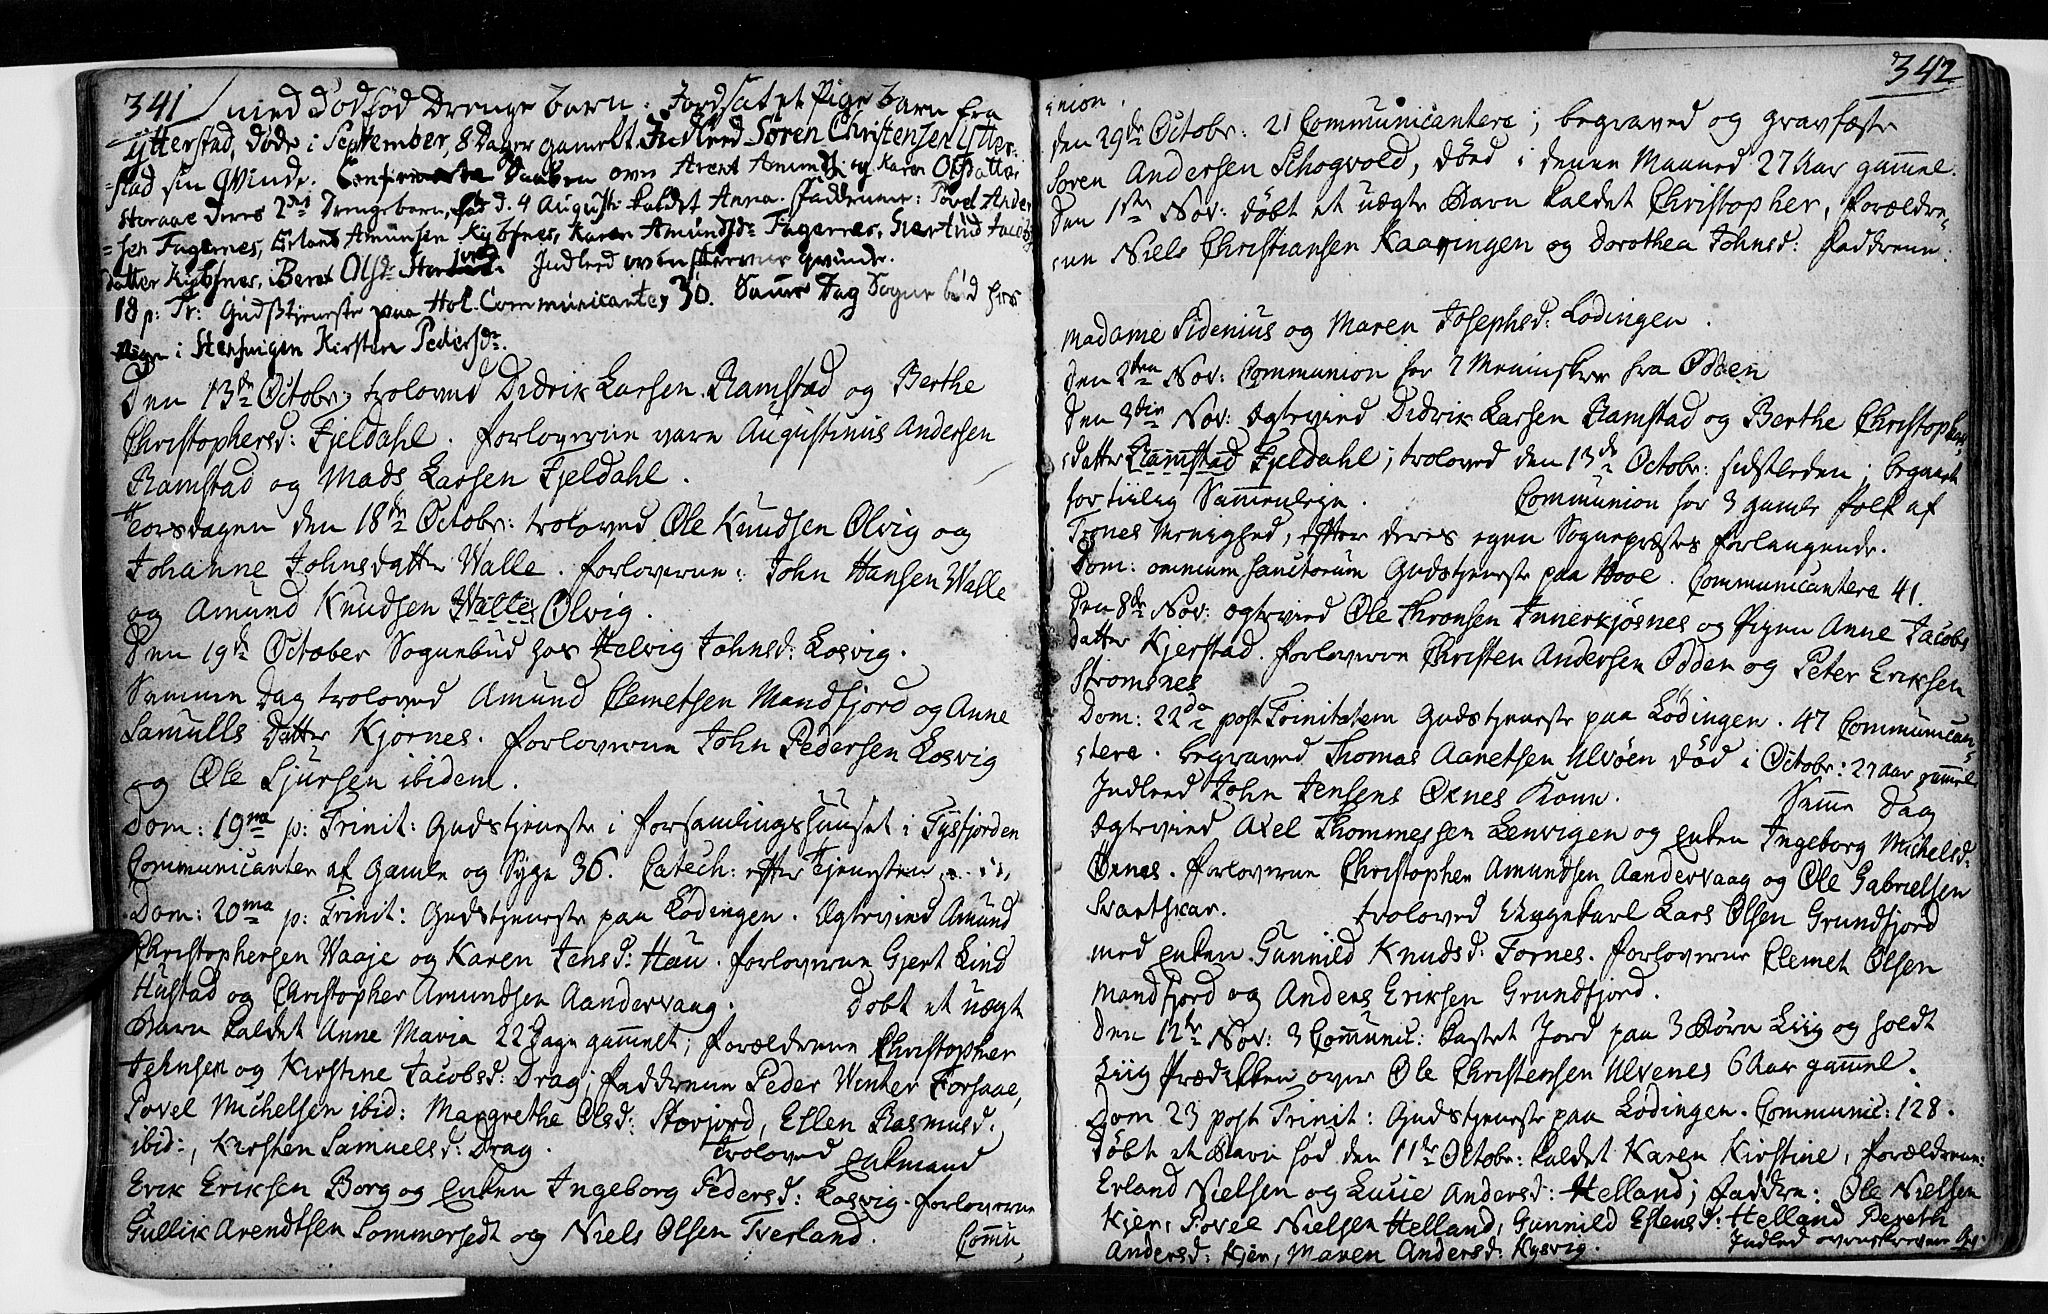 341 med Dødfød Drenge barn. Jordsat et Pige barn fra
Ytterstad, døde i September, 8 Dager gamelt. Indleed Søren Christensen Ytter-
stad sin Qvinde. Confirmerte Daaben over Arent Amunds: og Karen Olsdatter
Storaae deres Drengebarn, fød d. 4 August: kaldet Anna. Faddrerne: Povel Ander
=sen Fagernes, Erland Amunsen Kybsnes, Karen Amundsd: Fagernes, Giertrud Jacobs
datter Kybsnes, Beret Olsd: Indleed ovenskrevne Qvinde.
18 p: Tr: Gudstjeneste paa Hol. Communicanter 30. Same Dag Sogne bud hos
Pigen i Stensvigen Kirsten Pedersd:
Den 13de Octobr: troloved Didrik Larsen Ramstad og Berthe
Christophersd: Fjeldahl. Forloverne vare Augustinus Andersen
Ramstad og Mads Larsen Fjeldahl.
Torsdagen den 18de Octobr: troloved Ole Knudsen Ølvig og
Johanne Johnsdatter Walle. Forloverne: John Hansen Walle
og Amund Knudsen Walle Ølvig.
Den 19de October Sognebud hos Helvig Johnsd: Losvig.
Samme Dag troloved Amund Clemetsen Mandfjord og Anne
Samuels Datter Kjørnes. Forloverne John Pedersen Losvig
og Ole Sjursen ibidem.
Dom: 19ma p: Trinit: Gudstjeneste i Forsamlingshuuset i Tysfjorden
Communicanter af Gamle og Syge 36. Catech: efter Tjenesten
Dom: 20ma p: Trinit: Gudstjeneste paa Lødingen. Ægtevied Amund
Christophersen Waaje og Karen Jensd: Hau. Forloverne Gjert Lind
Hustad og Christopher Amundsen Aandervaag. Døbt et uægt
Barn kaldet Anne Maria 22 Dage gammelt; Forældrene Christopher
Johnsen og Kirstine Jacobsd: Drag; Faddrene Peder Winther Forsaae,
Povel Michelsen ibid: Margrethe Olsd: Storjord, Ellen Rasmusd.
ibid:, Kirsten Samuelsd: Drag. Troloved Enkemand
Erik Eriksen Borg og Enken Ingeborg Pedersd: Losvig. Forloverne
Gullik Arendtsen Sommersedt og Niels Olsen Tverland. Commu,
342
nion.
Den 29de Octobr: 21 Communicantere; begraved og gravfæste
Søren Andersen Schogvold, død i denne Maaned 27 Aar gammel.
Den 1ste Nov: døbt et uægte Barn kaldet Christopher, Forældre-
ne Niels Christiansen Kaaringen og Dorothea Johnsd: Faddrene:
Madame Sidenius og Maren Josephsd: Lødingen.
Den 2den Nov: Communion for 7 Mennisker fra Odden
Den 3die Nov: ægtevied Didrik Larsen Ramstad og Berthe Christophers
datter Ramstad Fjeldahl; troloved den 13de Octobr: sidstleden; begaaet
for tiilig Sammenleje. Communion for 3 gamle folk af
Trones Menighed, efter deres egen Sognepræstes Forlangende.
Dom: omnium sanctorum Gudstjeneste paa Hool. Communicantere 41.
Den 8de Nov: ægtevied Ole Thronsen Innerkjøsnes og Pigen Anne Jacobs
datter Kjerstad. Forloverne Christen Andersen Odden og Peter Eriksen
Strømsnes
Dom: 22da post Trinitatem Gudstjeneste paa Lødingen. 47 Communican-
tere. Begraved Thomas Aanetsen Ulvøen død i Octobr: 27 aar gammel
Indleed John Jensens Ørnes Kone. Samme Dag
Ægtevied Axel Thommessen Lenvigen og Enken Ingeborg Michelsd:
Ørnes. Forloverne Christopher Amundsen Aandervaag og Ole Gabrielsen
Svartskar. Troloved Ungekarl Lars Olsen Grundfjord
med Enken Gunnild Knudsd: Tornes. Forloverne Clemet Olsen
Mandfjord og Anders Eriksen Grundfjord.
Den 12te Nov: 3 Communic: kastet Jord paa 3 Børn Liig og holdt
Liig Prædikken over Ole Christensen Ulvenes 6 Aar gammel.
Dom 23 post Trinit: Gudstjeneste paa Lødingen. Communic: 128.
Døbt et Barn fød den 11te Octobr: kaldet Karen Kirstine, Forældrene:
Erland Nielsen og Lucie Andersd: Helland; Faddre: Ole Nielsen
Kjer, Povel Nielsen Helland, Gunnild Estensd: Helland Pereth
Andersd: Kjer, Maren Andersd: Kysvig. Indled ovenskrevne